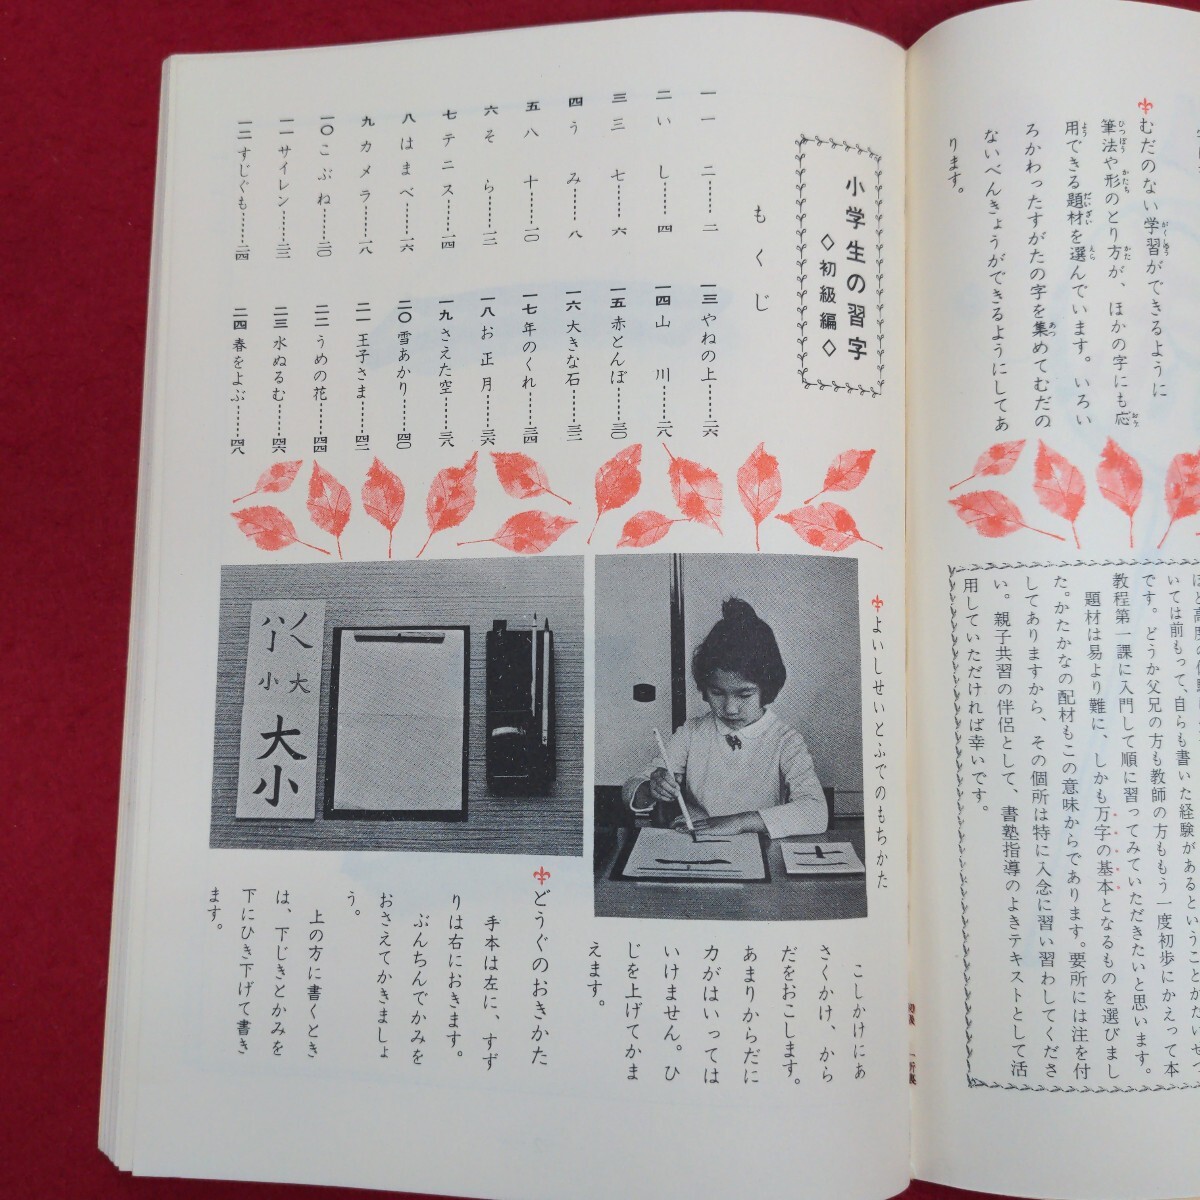 むだのない学習ができるように
筆法や形のとり方が、ほかの字にも応
用できる題材を選んでいます。いろい
ろかわったすがたの字を集めてむだの
ないべんきょうができるようにしてあ
ります。
いては前もって、自らも書いた経験があるということがたいせつ
です。どうか父兄の方も教師の方ももう一度初歩にかえって本
教程第一課に入門して順に習ってみていただきたいと思います。
題材は易より難に、しかも万字の基本となるものを選びまし
た。かたかなの配材もこの意味からであります。要所には注を付
してありますから、その個所は特に入念に習い習わしてくださ
い。親子共習の伴侶として、書塾指導のよきテキストとして活
用していただければ幸いです。
小学生の習字
◇初級編◇
もくじ
一 一 二……二
二 い し……四
三 三 七……六
四 う み……八
五 八 十……一〇
六 そ ら……一二
七 テニス……一四
八 はまべ……一六
九 カメラ……一八
一〇 こぶね……二〇
一一 サイレン……二二
一二 すじぐも……二四
一三 やねの上……二六
一四 山 川……二八
一五 赤とんぼ……三〇
一六 大きな石……三二
一七 年のくれ……三四
一八 お正月……三六
一九 さえた空……三八
二〇 雪あかり……四〇
二一 王子さま……四二
二二 うめの花……四四
二三 水ぬるむ……四六
二四 春をよぶ……四八
よいしせいとふでのもちかた
こしかけにあ
さくかけ、から
だをおこします。
あまりからだに
力がはいっては
いけません。ひ
じを上げてかま
えます。
大
小
大小
どうぐのおきかた
手本は左に、すず
りは右におきます。
ぶんちんでかみを
おさえてかきましょ
う。
上の方に書くとき
は、下じきとかみを
下にひき下げて書き
ます。